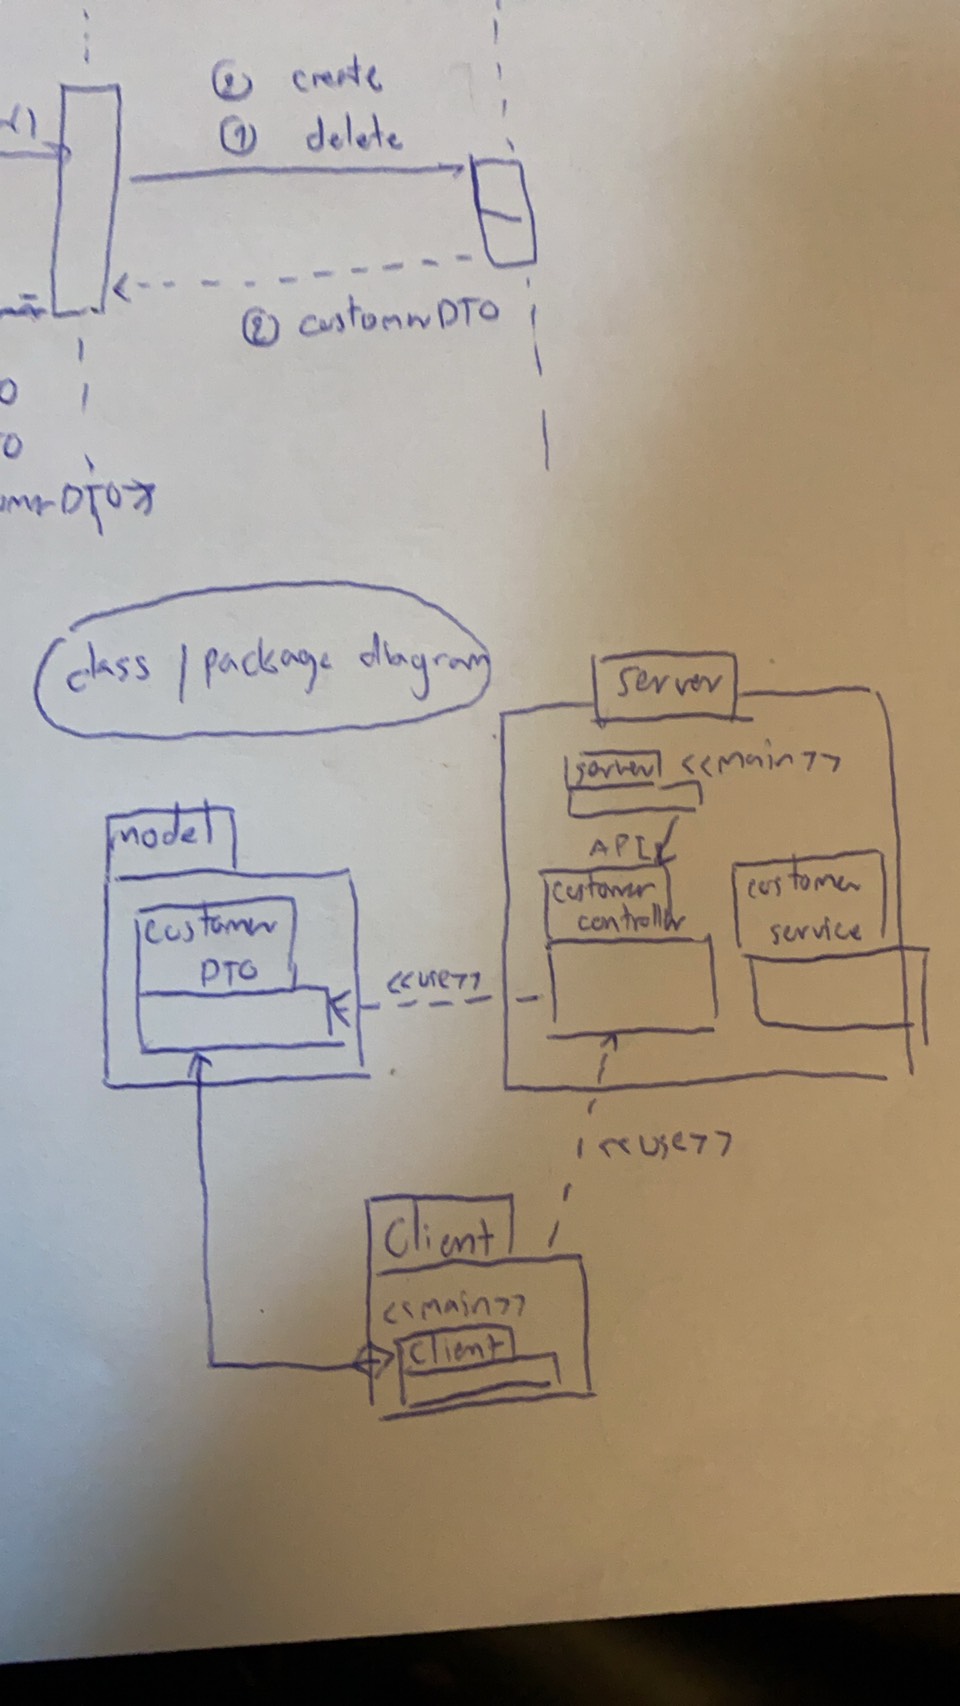 ② create
① delete
② customerDTO
class / package diagram
server
server <<main>>
API
model
customer
controller
customer
service
customer
DTO
<<use>>
<<use>>
Client
<<main>>
Client